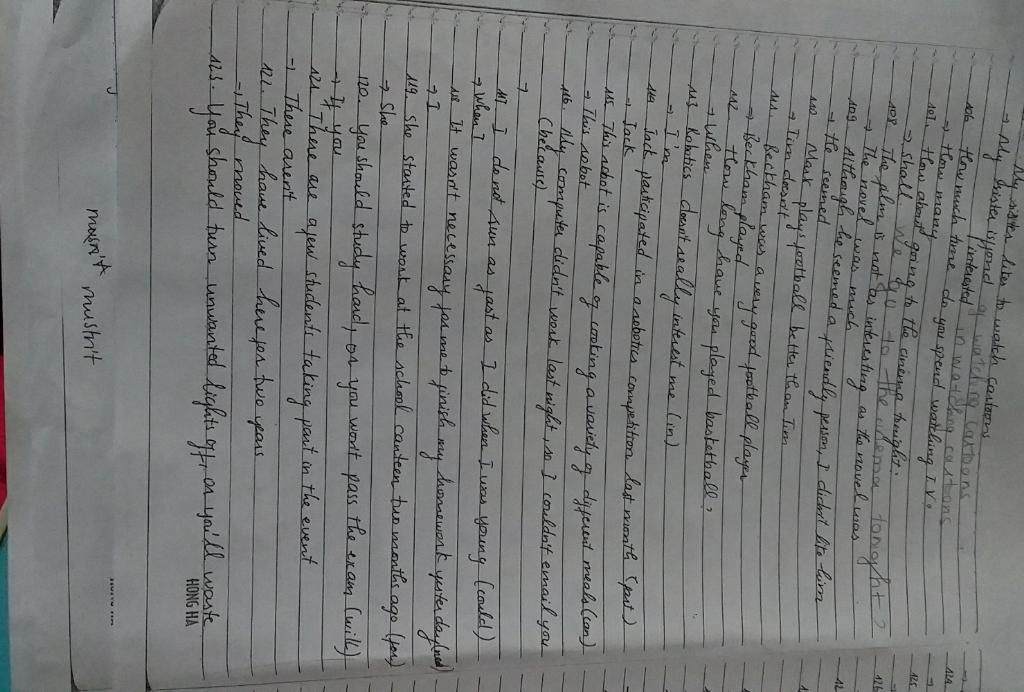 My sister likes to watch cartoons
→ My sister is fond of watching cartoons
interested in watching cartoons
106. How much time do you spend watching T.V?
→ How many
107. How about going to the cinema tonight.
→ Shall we go to the cinema tonight?
108. The film is not as interesting as the novel was
→ The novel was much
109. Although he seemed a friendly person, I didn't like him
→ He seemed
110. Mark plays football better than Tim
→ Tim doesn't
111. Beckham was a very good football player
→ Beckham played
112. How long have you played basketball?
→ When
113. Robotics doesn't really interest me (in)
→ I'm
114. Jack participated in a robotics competition last month (part)
→ Jack
115. This robot is capable of cooking a variety of different meals (can)
→ This robot
116. My computer didn't work last night, so I couldn't email you
(because)
→
117. I do not run as fast as I did when I was young (could)
→ When I
118. It wasn't necessary for me to finish my homework yesterday (need)
→ I
119. She started to work at the school canteen two months ago (for)
→ She
120. You should study hard, or you won't pass the exam (will)
→ If you
121. There are a few students taking part in the event
→ There aren't
122. They have lived here for two years
→ They moved
123. You should turn unwanted lights off, or you'll waste
HONG HA
musn't mustnit